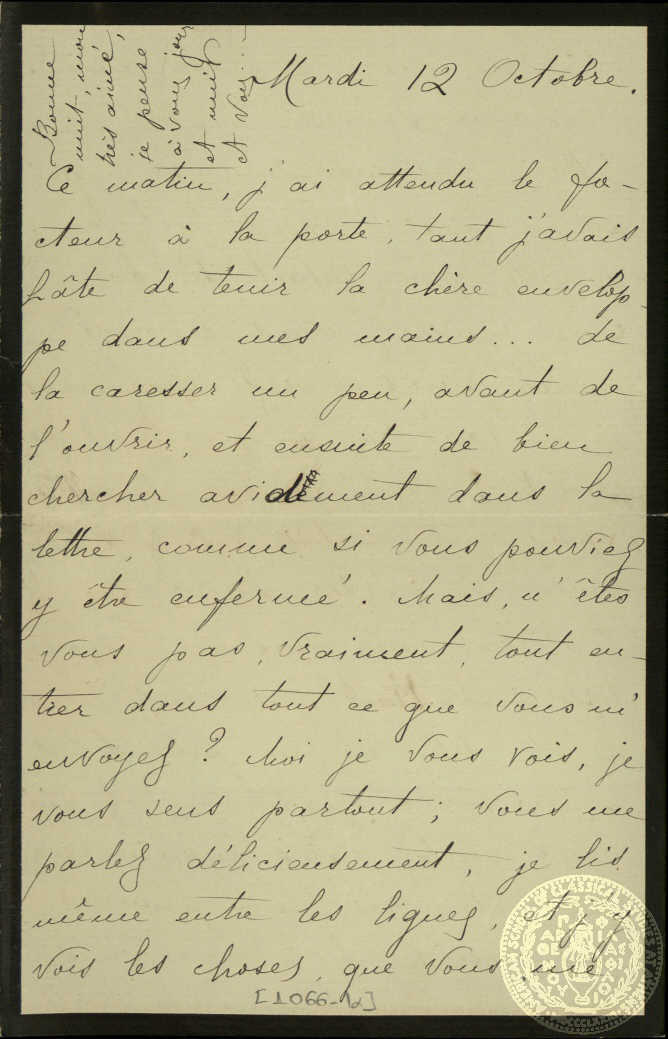 Bonne
nuit, mon
très aimé,
je pense
à vous jour
et nuit
et vous...
Mardi 12 Octobre.
Ce matin, j'ai attendu le fa-
cteur à la porte, tant j'avais
hâte de tenir la chère envelop-
pe dans mes mains... de
la caresser un peu, avant de
l'ouvrir, et ensuite de bien
chercher avidement dans la
lettre, comme si vous pouviez
y être enfermé. Mais, n'êtes
vous pas, vraiment, tout en-
tier dans tout ce que vous m'
envoyez ? Moi je vous vois, je
vous sens partout ; vous me
parlez délicieusement, je lis
même entre les lignes, et j'y
vois les choses, que vous me
[1066-12]